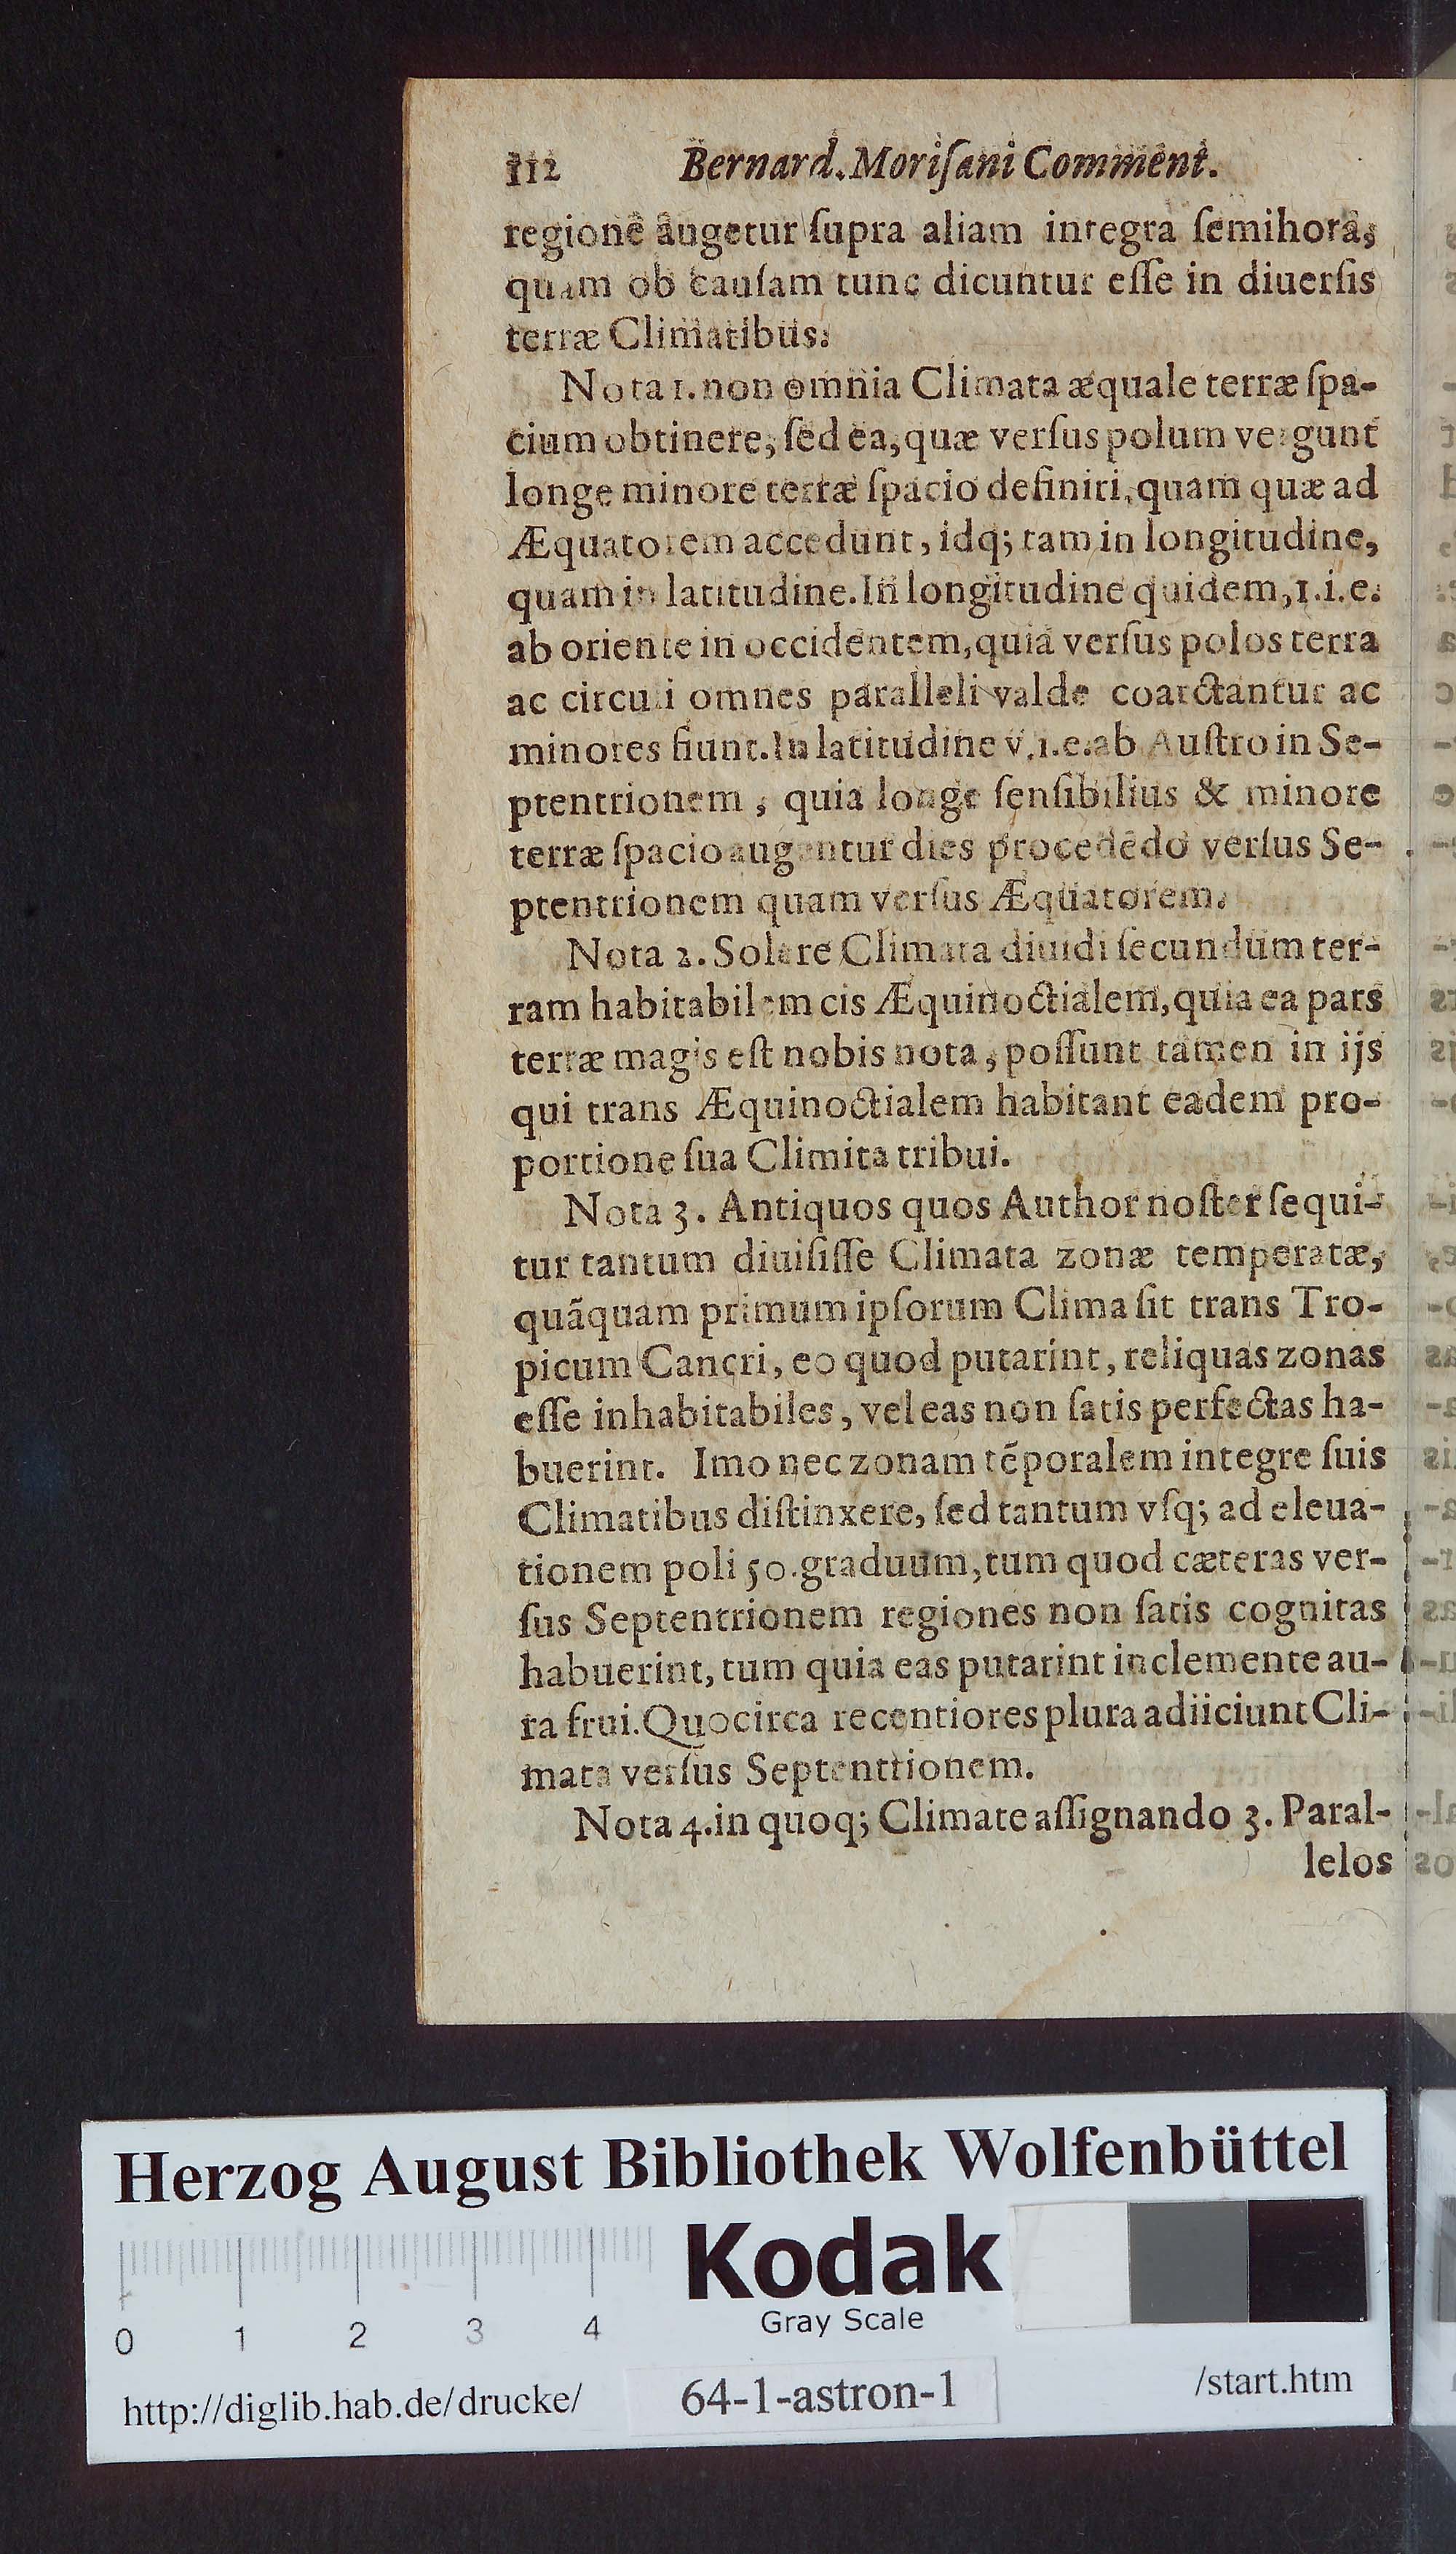 112 Bernard. Moriſani Comment.
regionē augetur ſupra aliam integra ſemihora,
quam ob cauſam tunc dicuntur eſſe in diuerſis
terræ Climatibus.
Nota 1. non omnia Climata æquale terræ ſpa-
cium obtinere, ſed ea, quæ verſus polum vergunt
longe minore terræ ſpacio definiri, quam quæ ad
Æquatorem accedunt, idq; tam in longitudine,
quam in latitudine. In longitudine quidem, 1. i. e.
ab oriente in occidentem, quia verſus polos terra
ac circuli omnes paralleli valde coarctantur ac
minores fiunt. In latitudine v. i. e. ab Auſtro in Se-
ptentrionem, quia longe ſenſibilius & minore
terræ ſpacio augentur dies procedēdo verſus Se-
ptentrionem quam verſus Æquatorem.
Nota 2. Solere Climata diuidi ſecundum ter-
ram habitabilem cis Æquinoctialem, quia ea pars
terræ magis eſt nobis nota, poſſunt tamen in ijs
qui trans Æquinoctialem habitant eadem pro-
portione ſua Climita tribui.
Nota 3. Antiquos quos Author noſter ſequi-
tur tantum diuiſiſſe Climata zonæ temperatæ,
quāquam primum ipſorum Clima ſit trans Tro-
picum Cancri, eo quod putarint, reliquas zonas
eſſe inhabitabiles, vel eas non ſatis perfectas ha-
buerint. Imo nec zonam tēporalem integre ſuis
Climatibus diſtinxere, ſed tantum vſq; ad eleua-
tionem poli 50. graduum, tum quod cæteras ver-
ſus Septentrionem regiones non ſatis cognitas
habuerint, tum quia eas putarint inclemente au-
ra frui. Quocirca recentiores plura adiiciunt Cli-
mata verſus Septentrionem.
Nota 4. in quoq; Climate aſſignando 3. Paral-
lelos
Herzog August Bibliothek Wolfenbüttel
Kodak
Gray Scale
0 1 2 3 4
http://diglib.hab.de/drucke/ 64-1-astron-1 /start.htm